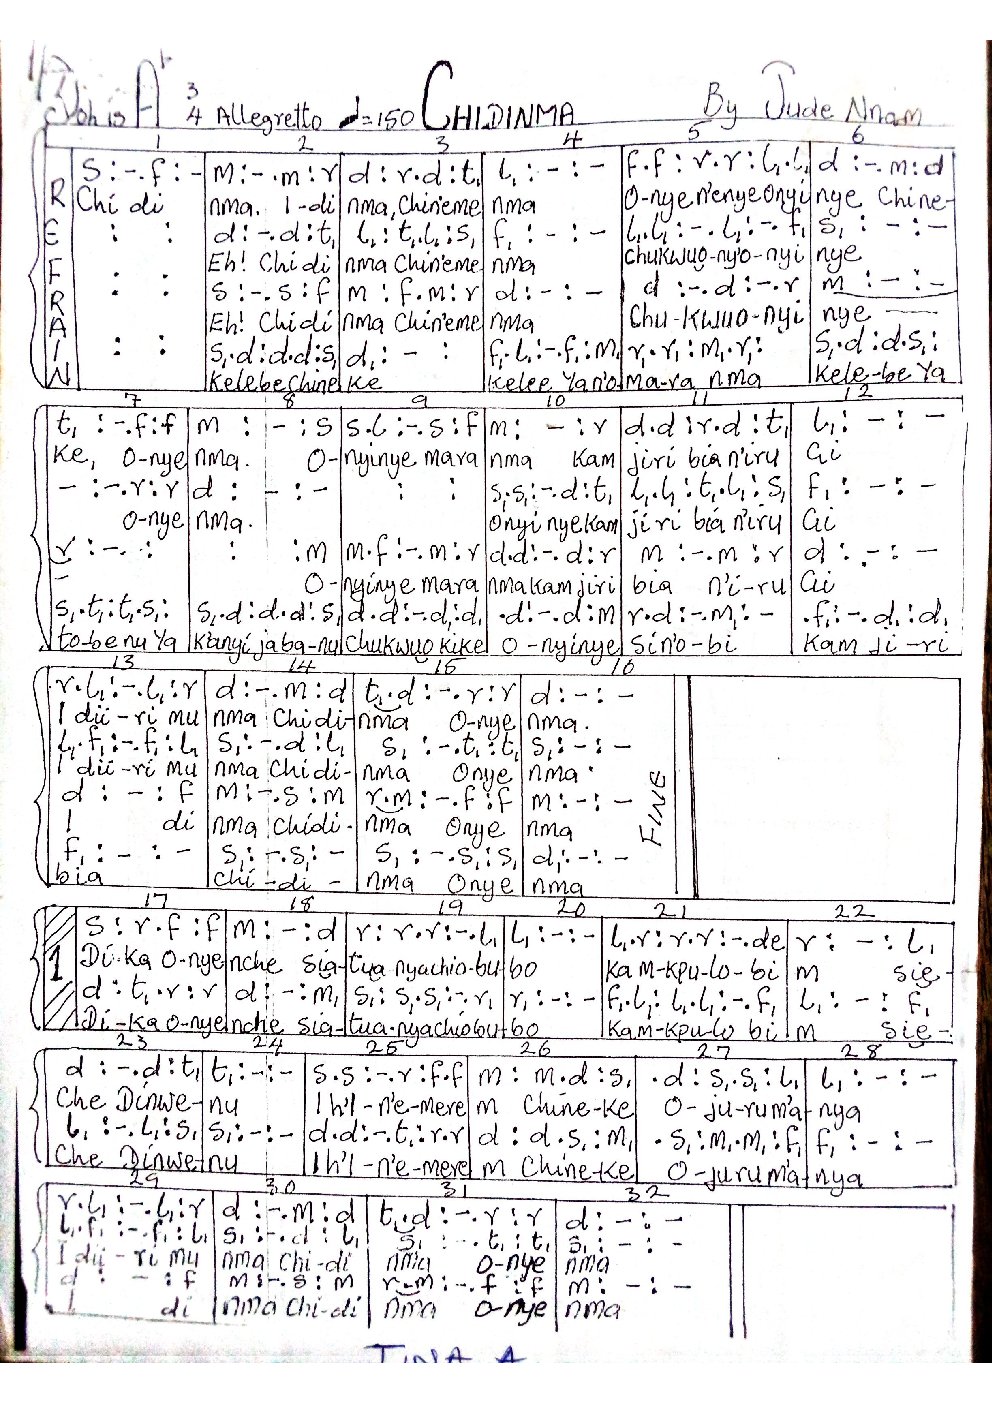 Doh is A♭ 3/4 Allegretto ♩=150 CHIDINMA By Jude Nnam
1 2 3 4 5 6
REFRAIN
S : -. f : - | m : -. m : r | d : r. d : t₁ | l₁ : - : - | f. f : r. r : l₁. l₁ | d : -. m : d
Chi di | nma. I-di | nma, Chin'eme | nma | O-nye n'enye Onyi | nye Chine-
: : | d : -. d : t₁ | l₁ : t₁. l₁ : s₁ | f₁ : - : - | l₁. l₁ : -. l₁ : -. f₁ | s₁ : - : -
Eh! Chi di | nma Chin'eme | nma | Chukwuo-ny'o-nyi | nye
: : | s : -. s : f | m : f. m : r | d : - : - | d : -. d : -. r | m : - : -
Eh! Chi di | nma Chin'eme | nma | Chu-kwuo-nyi | nye
: : | s₁. d : d. d : s₁ | d₁ : - : | f₁. l₁ : -. f₁ : m₁ | r₁. r₁ : m₁. r₁ : | s₁. d : d. s₁ :
Kelebe Chine | ke | Kelee Ya n'o | ma-ra nma | Kele-be Ya
7 8 9 10 11 12
t₁ : -. f : f | m : - : s | s. l : -. s : f | m : - : r | d. d : r. d : t₁ | l₁ : - : -
Ke, O-nye | nma. O- | nyinye mara | nma Kam | jiri bia n'iru | Gi
- : -. r : r | d : - : - | : : | s₁. s₁ : -. d : t₁ | l₁. l₁ : t₁. l₁ : s₁ | f₁ : - : -
O-nye | nma. | Onyi nye Kam | ji ri bia n'iru | Gi
r : -. : | : : m | m. f : -. m : r | d. d : -. d : r | m : -. m : r | d : - : -
- O- | nyinye mara | nma kam jiri | bia n'i-ru | Gi
s₁. t₁ : t₁. s₁ : | s₁. d : d. d : s₁ | d. d : -. d₁ : d₁ | . d : -. d : m | r. d : -. m₁ : - | . f₁ : -. d₁ : d₁
to-be nu Ya | k'anyi jaba-nu | Chukwuo kike | O-nyinye | Sin'o-bi | Kam Ji-ri
13 14 15 16
r. l₁ : -. l₁ : r | d : -. m : d | t₁. d : -. r : r | d : - : -
I dii-ri mu | nma Chidi- | nma O-nye | nma.
l₁. f₁ : -. f₁ : l₁ | s₁ : -. d : l₁ | s₁ : -. t₁ : t₁ | s₁ : - : -
I dii-ri mu | nma Chidi- | nma Onye | nma
d : - : f | m : -. s : m | r. m : -. f : f | m : - : -
I di | nma Chidi- | nma Onye | nma
f₁ : - : - | s₁ : -. s₁ : - | s₁ : -. s₁ : s₁ | d₁ : - : -
bia | Chi-di- | nma Onye | nma
FINE
17 18 19 20 21 22
1
s : r. f : f | m : - : d | r : r. r : -. l₁ | l₁ : - : - | l₁. r : r. r : -. de | r : - : l₁
Di-ka O-nye | nche sia- | tua nyachio-bu | bo | Ka m-kpu-lo-bi | m sie-
d : t₁. r : r | d : - : m₁ | s₁ : s₁. s₁ : -. r₁ | r₁ : - : - | f₁. l₁ : l₁. l₁ : -. f₁ | l₁ : - : f₁
Di-Ka O-nye | nche sia- | tua-nyachiobu- | bo | Kam-kpu-lo bi | m sie-
23 24 25 26 27 28
d : -. d : t₁ | t₁ : - : - | s. s : -. r : f. f | m : m. d : s₁ | . d : s₁. s₁ : l₁ | l₁ : - : -
Che Dinwe- | nu | I h'I-n'e-mere | m Chine-Ke | O-ju-ru m'a- | nya
l₁ : -. l₁ : s₁ | s₁ : - : - | d. d : -. t₁ : r. r | d : d. s₁ : m₁ | . s₁ : m₁. m₁ : f₁ | f₁ : - : -
Che Dinwe- | nu | I h'I-n'e-mere | m Chine-Ke | O-juru m'a- | nya
29 30 31 32
r. l₁ : -. l₁ : r | d : -. m : d | t₁. d : -. r : r | d : - : -
l₁. f₁ : -. f₁ : l₁ | s₁ : -. d : l₁ | s₁ : -. t₁ : t₁ | s₁ : - : -
I dii-ri mu | nma Chi-di | nma O-nye | nma
d : - : f | m : -. s : m | r. m : -. f : f | m : - : -
I di | nma Chi-di | nma O-nye | nma